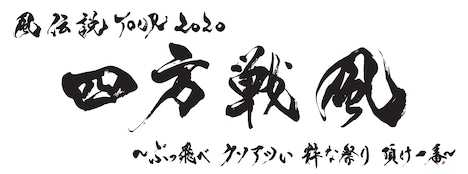 風伝説 TOUR 2020
四方戦風
〜ぶっ飛べ クソアツい 粋な祭り 頂け一番〜